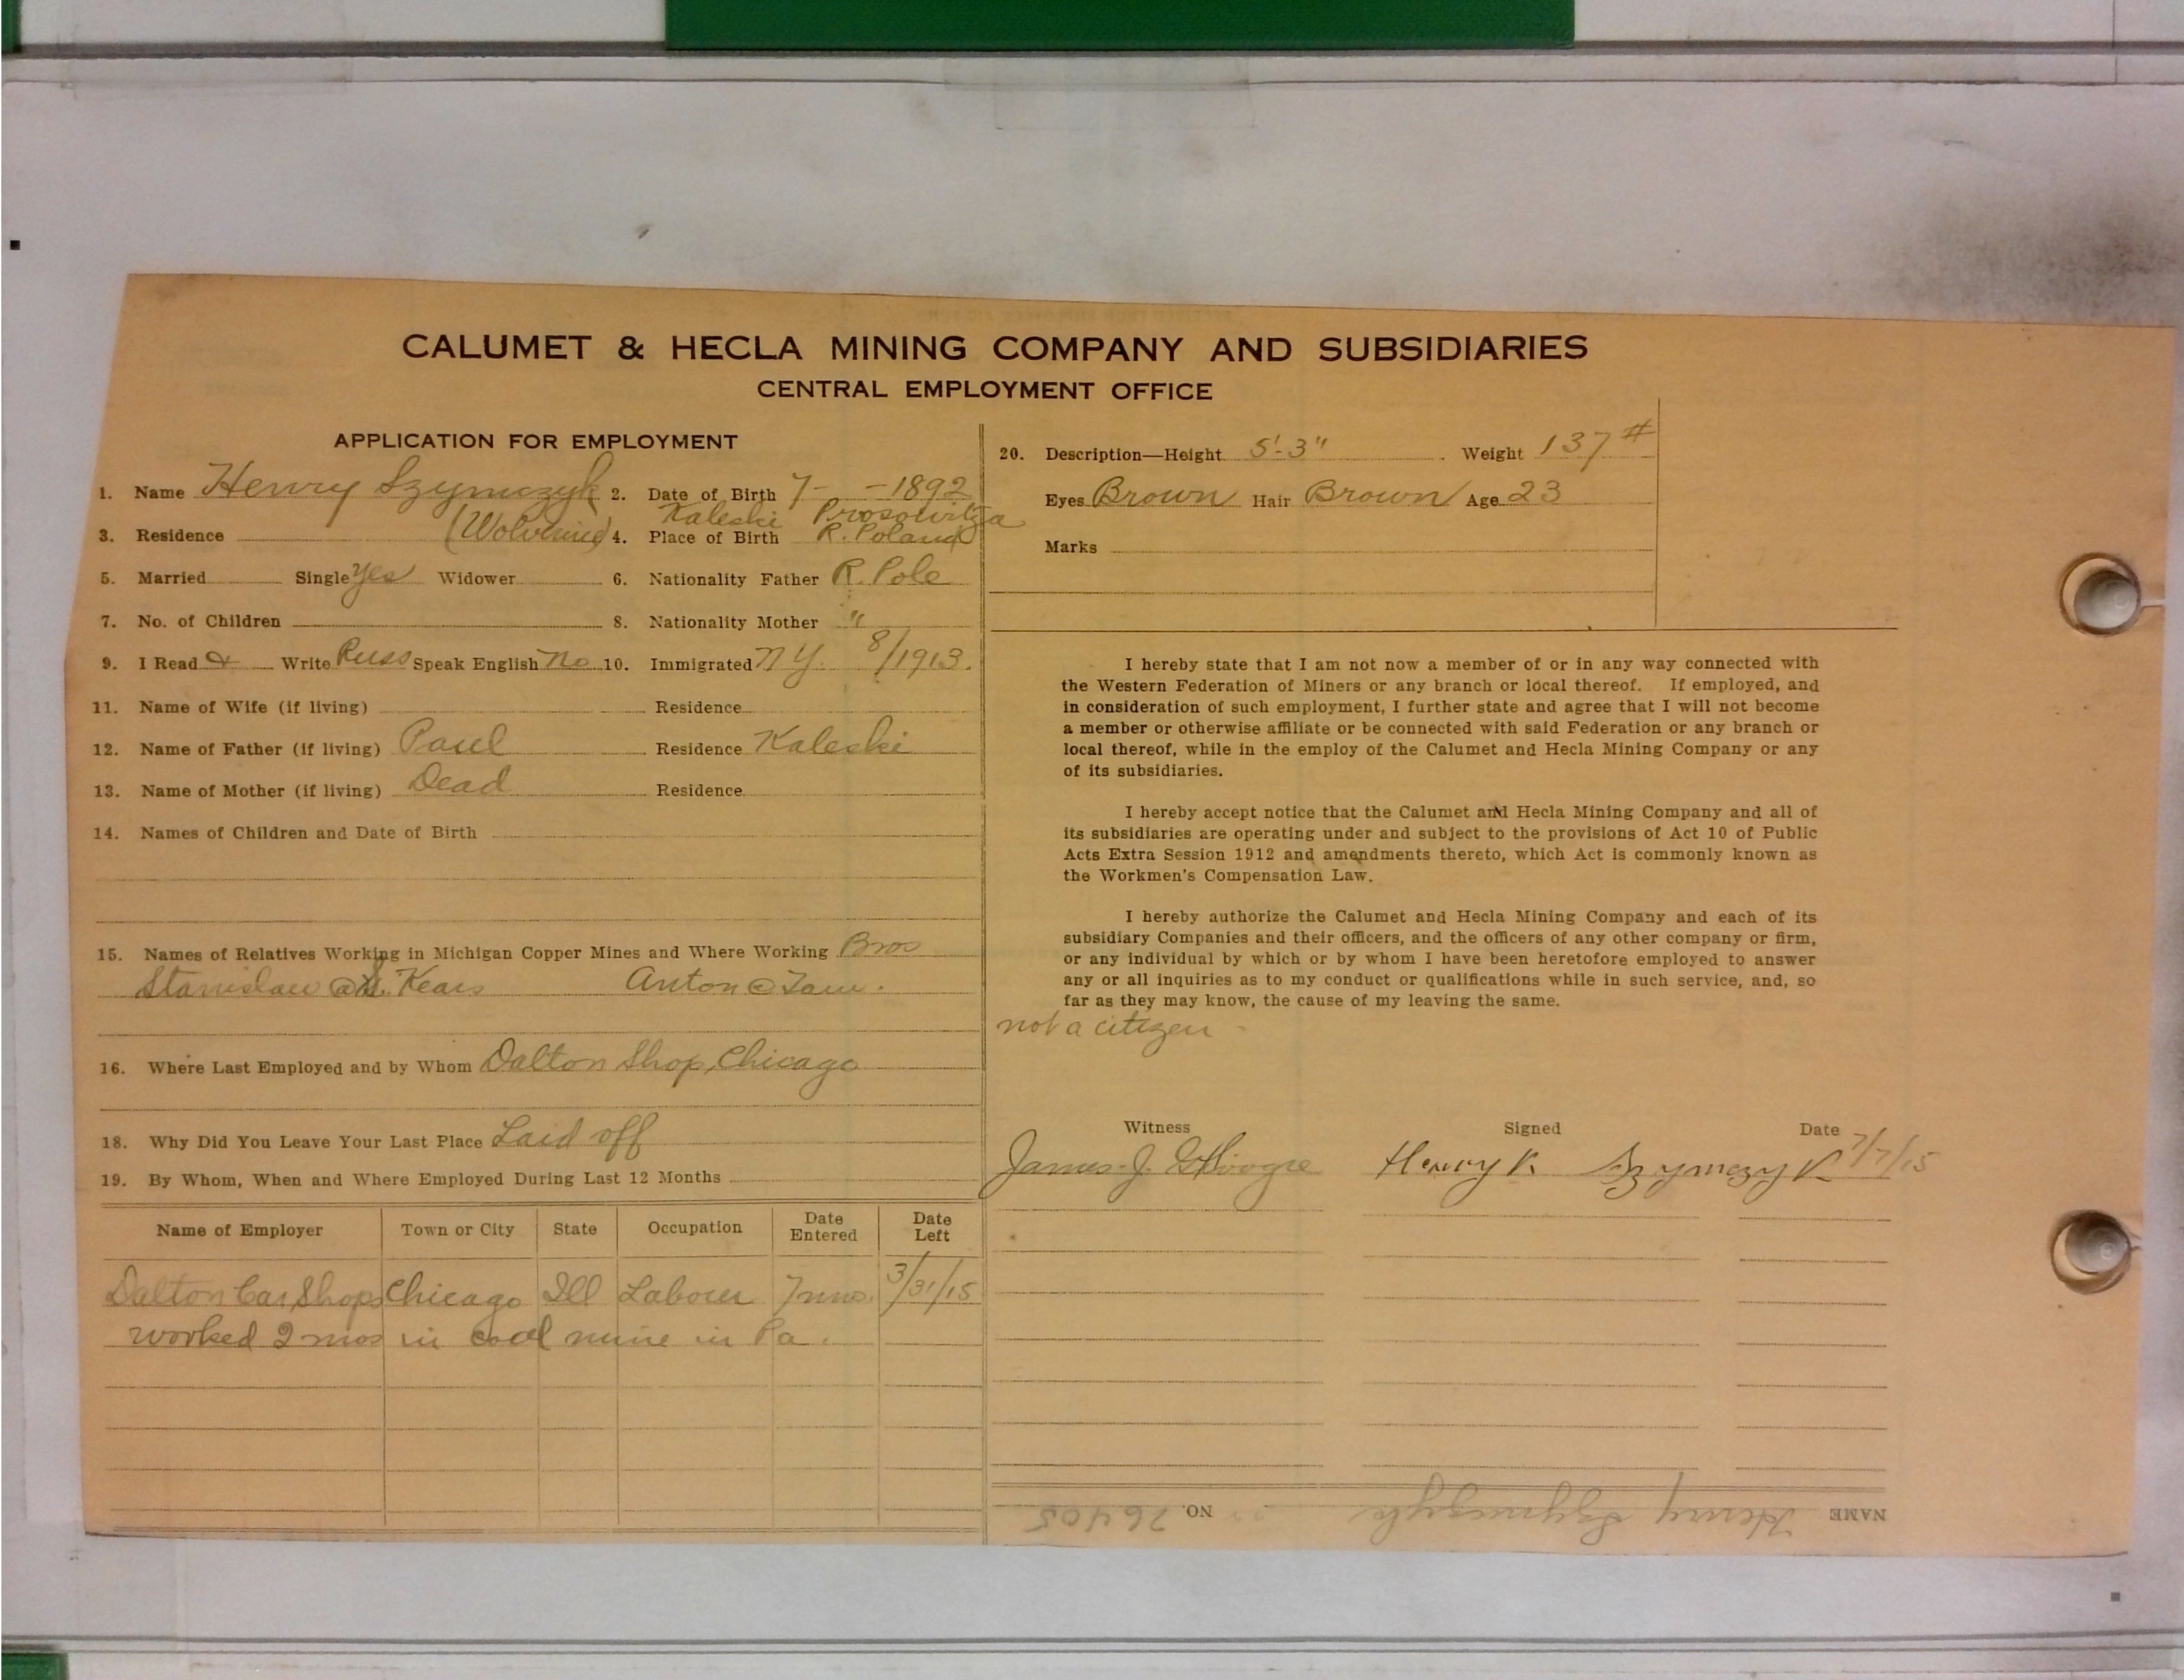 CALUMET & HECLA MINING COMPANY AND SUBSIDIARIES
CENTRAL EMPLOYMENT OFFICE
APPLICATION FOR EMPLOYMENT
1. Name Henry Szymczyk 2. Date of Birth 7- -1892
Kaleski Prosowitza
3. Residence (Wolverine) 4. Place of Birth R. Poland
5. Married Single Yes Widower 6. Nationality Father R. Pole
7. No. of Children 8. Nationality Mother "
9. I Read & Write Russ Speak English No 10. Immigrated N Y. 8/1913.
11. Name of Wife (if living) Residence
12. Name of Father (if living) Paul Residence Kaleski
13. Name of Mother (if living) Dead Residence
14. Names of Children and Date of Birth
15. Names of Relatives Working in Michigan Copper Mines and Where Working Bros
Stanislaw @ S. Kears Anton @ Tam.
16. Where Last Employed and by Whom Dalton Shop, Chicago
18. Why Did You Leave Your Last Place Laid off
19. By Whom, When and Where Employed During Last 12 Months
Name of Employer Town or City State Occupation Date Entered Date Left
Dalton Car Shops Chicago Ill Laborer 7 mos. 3/31/15
worked 2 mos in coal mine in Pa.
20. Description—Height 5'-3" Weight 137#
Eyes Brown Hair Brown Age 23
Marks
I hereby state that I am not now a member of or in any way connected with
the Western Federation of Miners or any branch or local thereof. If employed, and
in consideration of such employment, I further state and agree that I will not become
a member or otherwise affiliate or be connected with said Federation or any branch or
local thereof, while in the employ of the Calumet and Hecla Mining Company or any
of its subsidiaries.
I hereby accept notice that the Calumet and Hecla Mining Company and all of
its subsidiaries are operating under and subject to the provisions of Act 10 of Public
Acts Extra Session 1912 and amendments thereto, which Act is commonly known as
the Workmen's Compensation Law.
I hereby authorize the Calumet and Hecla Mining Company and each of its
subsidiary Companies and their officers, and the officers of any other company or firm,
or any individual by which or by whom I have been heretofore employed to answer
any or all inquiries as to my conduct or qualifications while in such service, and, so
far as they may know, the cause of my leaving the same.
not a citizen -
Witness Signed Date
James J. Henryk Szymczyk 7/7/15
NAME Henry Szymczyk NO. 26405